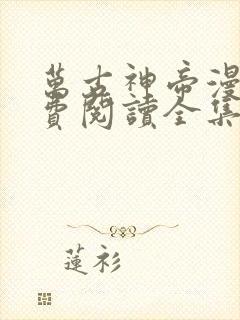 萬古神帝漫
費閱讀全集
蓮衫